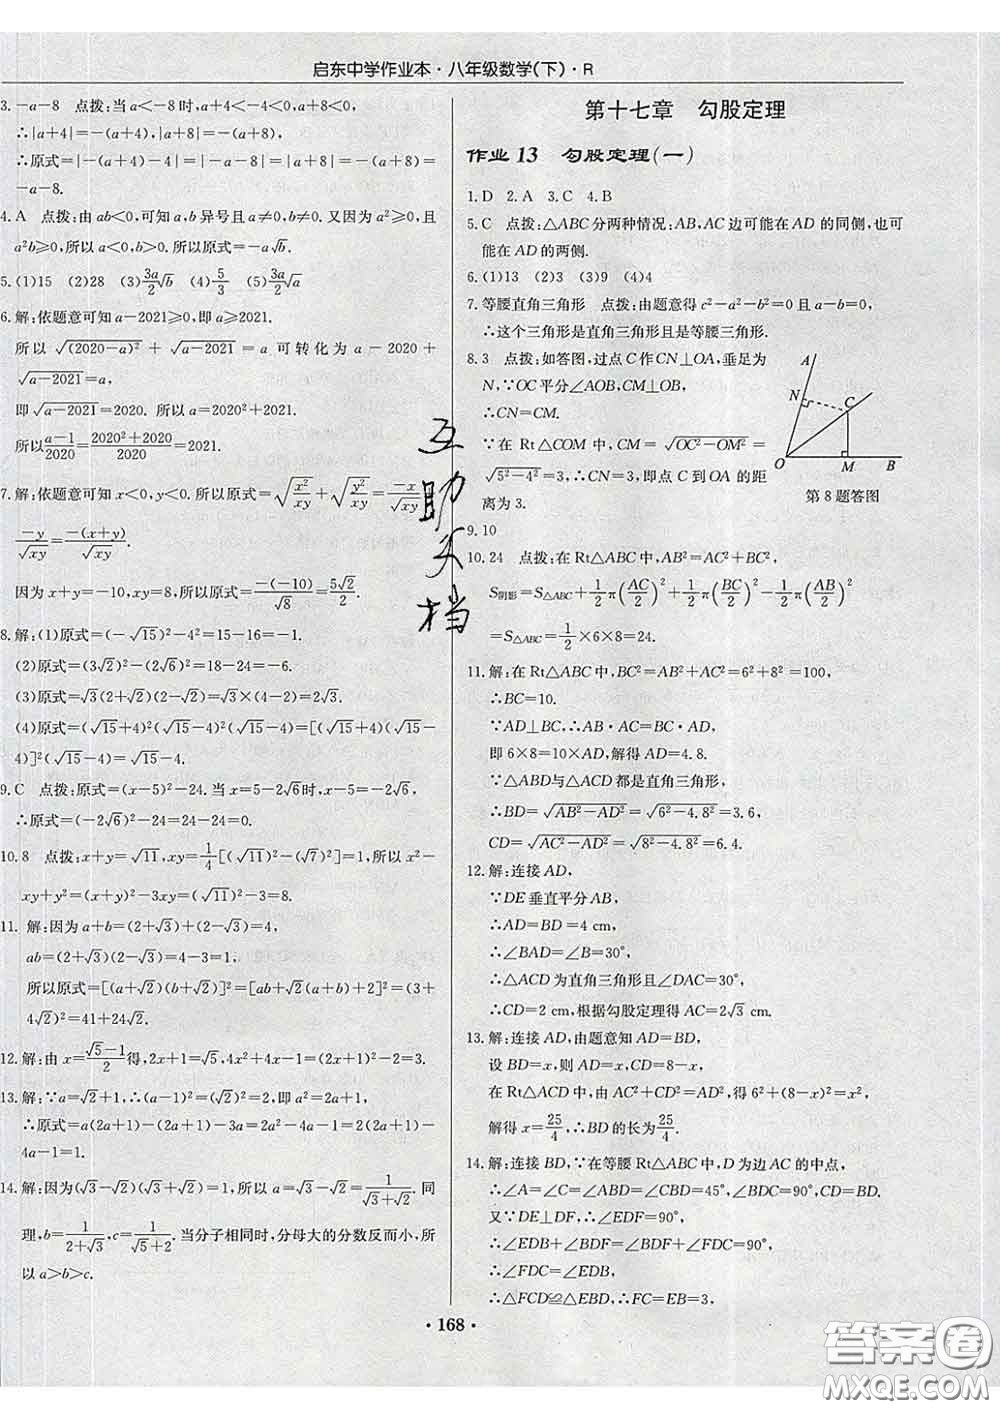 启东中学作业本·八年级数学(下)·R
3. -a-8　点拨:当a<-8时,a+4<-4<0,a+8<0,
∴|a+4|=-(a+4),|a+8|=-(a+8).
∴原式=|-4-|a+4||=|-4+a+4|=|a|=
-a-8.
4. A　点拨:由ab<0,可知a,b异号且a≠0,b≠0.又因为a²≥0,且
a²b≥0,所以a<0,b>0.所以原式=-a√b.
5. (1)15　(2)28　(3)3a/2√b　(4)5/3　(5)3a/2√a
6. 解:依题意可知a-2021≥0,即a≥2021.
所以√(2020-a)²+√(a-2021)=a可转化为a-2020+
√(a-2021)=a,
即√(a-2021)=2020.所以a=2020²+2021.
所以(a-1)/2020=(2020²+2020)/2020=2021.
7. 解:依题意可知x<0,y<0.所以原式=√(x²/xy)+√(y²/xy)=-x/√xy+
-y/√xy=-(x+y)/√xy.
因为x+y=-10,xy=8,所以原式=-(-10)/√8=5√2/2.
8. 解:(1)原式=(-√15)²-4²=15-16=-1.
(2)原式=(3√2)²-(2√6)²=18-24=-6.
(3)原式=√3(2+√2)(2-√2)=√3×(4-2)=2√3.
(4)原式=(√15+4)²(√15-4)²(√15-4)=[(√15+4)(√15-
4)]²(√15-4)=√15-4.
9. C　点拨:原式=(x-5)²-24.当x=5-2√6时,x-5=-2√6,
∴原式=(-2√6)²-24=24-24=0.
10. 8　点拨:x+y=√11,xy=1/4[(√11)²-(√7)²]=1,所以x²-
xy+y²=(x+y)²-3xy=(√11)²-3=8.
11. 解:因为a+b=(2+√3)+(2-√3)=4,
ab=(2+√3)(2-√3)=4-3=1,
所以原式=[(a+√2)(b+√2)]²=[ab+√2(a+b)+2]²=(3+
4√2)²=41+24√2.
12. 解:由x=(√5-1)/2得,2x+1=√5,4x²+4x-1=(2x+1)²-2=3.
13. 解:∵a=√2+1,∴(a-1)²=(√2)²=2,即a²=2a+1,
∴原式=a(2a+1)-(2a+1)-3a=2a²-4a=2(2a+1)-4a-
1=1.
14. 解:因为(√3-√2)(√3+√2)=1,所以a=√3-√2=1/(√3+√2).同
理,b=1/(2+√3),c=1/(√5+2).当分子相同时,分母大的分数反而小,所
以a>b>c.
第十七章　勾股定理
作业13　勾股定理(一)
1. D　2. A　3. C　4. B
5. C　点拨:△ABC分两种情况:AB,AC边可能在AD的同侧,也可
能在AD的两侧.
6. (1)13　(2)3　(3)9　(4)4
7. 等腰直角三角形　点拨:由题意得c²-a²-b²=0且a-b=0,
∴这个三角形是直角三角形且是等腰三角形.
8. 3　点拨:如答图,过点C作CN⊥OA,垂足为
N,∵OC平分∠AOB,CM⊥OB,
∴CN=CM.
∵在Rt△COM中,CM=√(OC²-OM²)=
√(5²-4²)=3,∴CN=3,即点C到OA的距
离为3.
A
N
C
O
M
B
第8题答图
9. 10
10. 24　点拨:在Rt△ABC中,AB²=AC²+BC²,
S阴影=S△ABC+1/2π(AC/2)²+1/2π(BC/2)²-1/2π(AB/2)²
=S△ABC=1/2×6×8=24.
11. 解:在Rt△ABC中,BC²=AB²+AC²=6²+8²=100,
∴BC=10.
∵AD⊥BC,∴AB·AC=BC·AD,
即6×8=10×AD,解得AD=4.8.
∵△ABD与△ACD都是直角三角形,
∴BD=√(AB²-AD²)=√(6²-4.8²)=3.6,
CD=√(AC²-AD²)=√(8²-4.8²)=6.4.
12. 解:连接AD,
∵DE垂直平分AB,
∴AD=BD=4 cm,
∴∠BAD=∠B=30°,
∴△ACD为直角三角形且∠DAC=30°,
∴CD=2 cm,根据勾股定理得AC=2√3 cm.
13. 解:连接AD,由题意知AD=BD,
设BD=x,则AD=x,CD=8-x,
在Rt△ACD中,由AC²+CD²=AD²,得6²+(8-x)²=x²,
解得x=25/4,∴BD的长为25/4.
14. 解:连接BD,∵在等腰Rt△ABC中,D为边AC的中点,
∴∠A=∠C=∠ABD=∠CBD=45°,∠BDC=90°,BD=CD.
又∵DE⊥DF,∴∠EDF=90°,
∴∠EDB+∠BDF=∠BDF+∠FDC=90°,
∴∠FDC=∠EDB,
∴△FCD≌△EBD,∴FC=EB=3,
互
助
文
档
·168·
答案圈
MXQE.COM